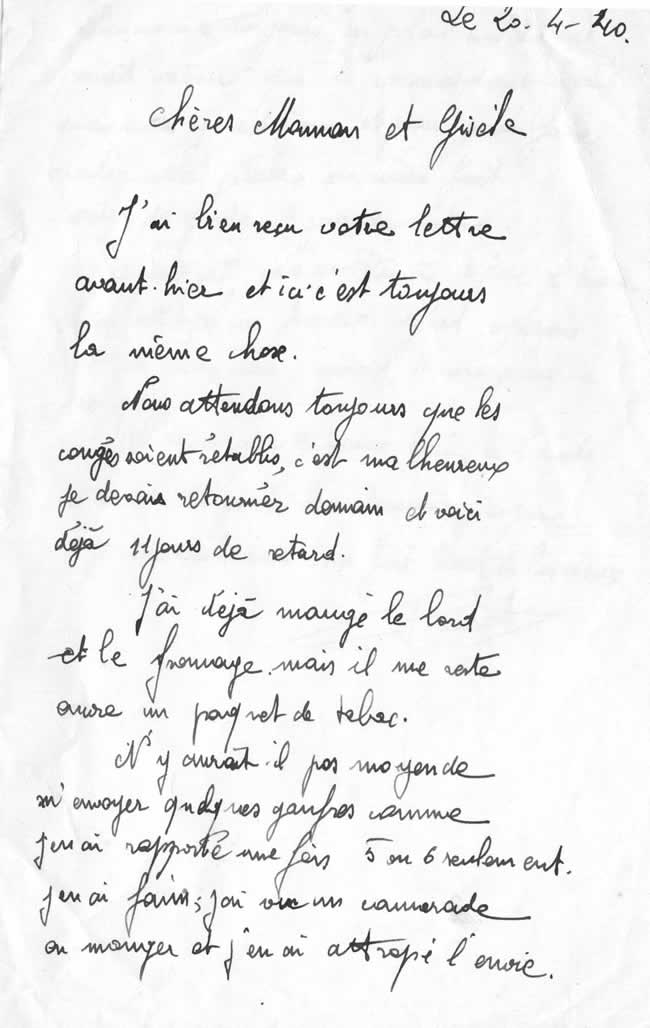 Le 20-4-40.
Chères Maman et Gisèle
J'ai bien reçu votre lettre
avant-hier et ici c'est toujours
la même chose.
Nous attendons toujours que les
congés soient rétablis, c'est malheureux
je devais retourner demain et voici
déjà 11 jours de retard.
J'ai déjà mangé le lard
et le fromage mais il me reste
encore un paquet de tabac.
N'y aurait-il pas moyen de
m'envoyer quelques gaufres comme
j'en ai rapporté une fois 5 ou 6 seulement.
j'en ai faim ; j'ai vu un camarade
en manger et j'en ai attrapé l'envie.